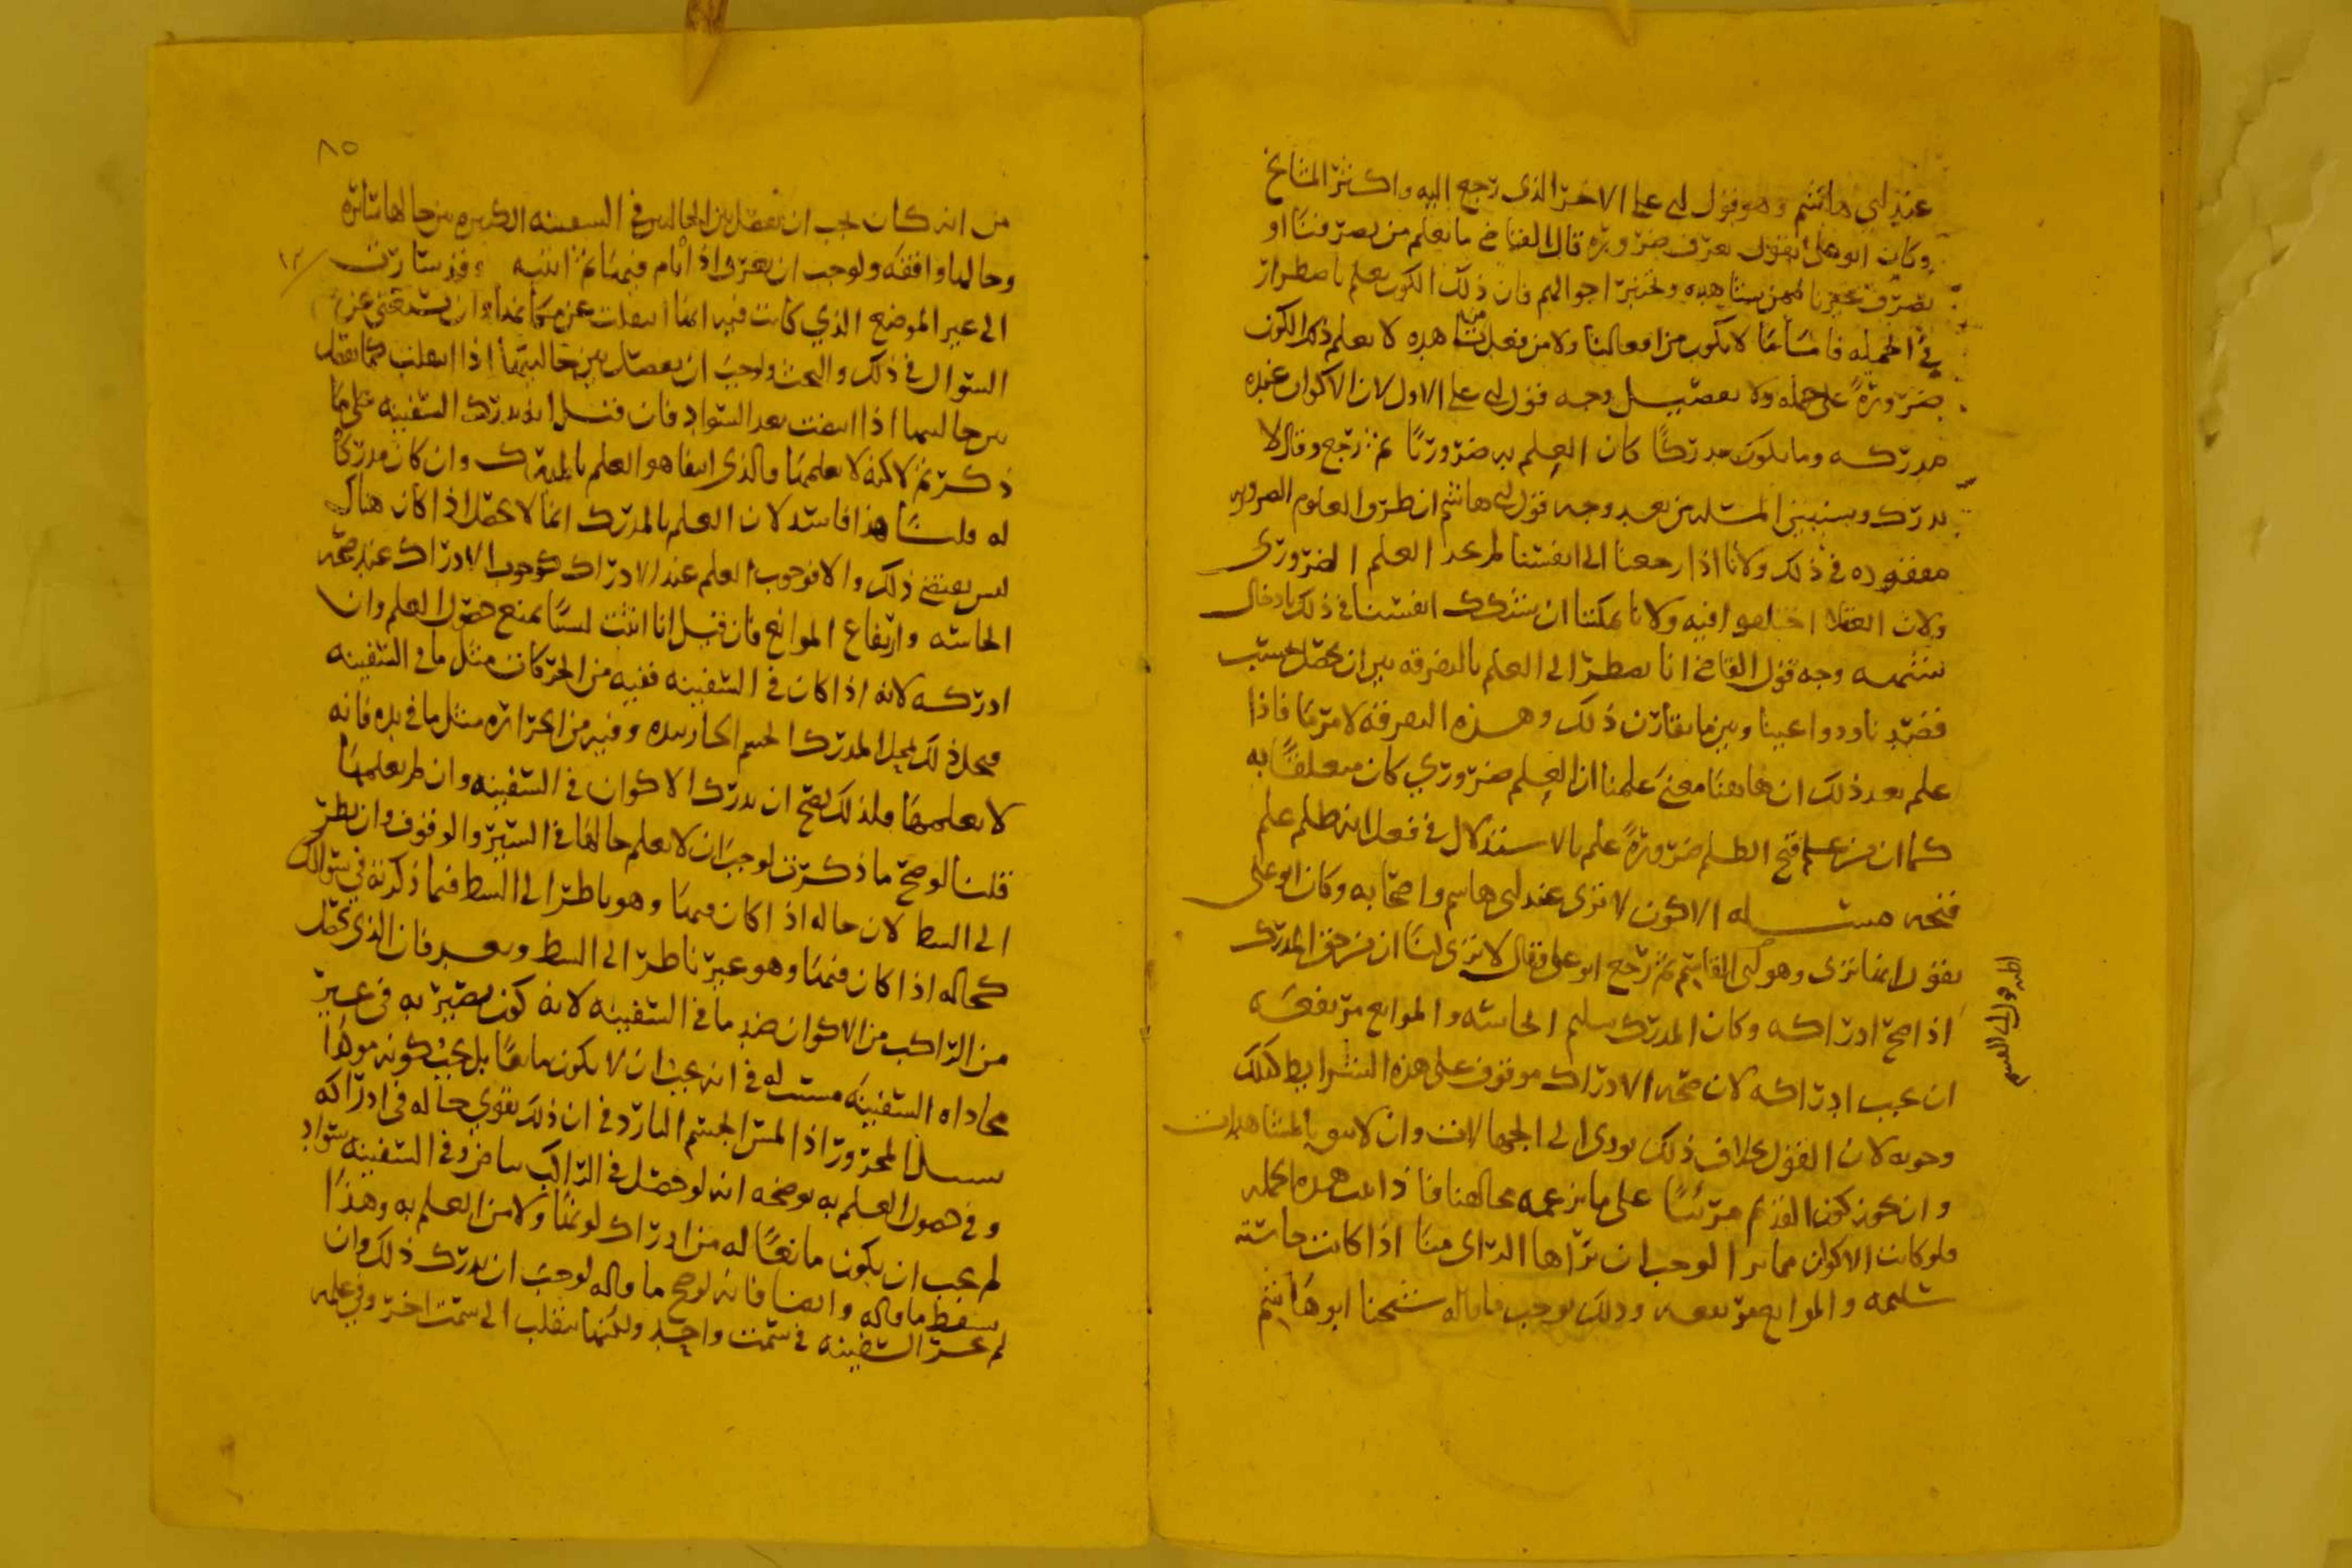 عند ابي هاشم وهو قول ابي علي الاخر الذي رجع اليه واكثر المشايخ
وكان ابو علي يقول يعرف ضرورة قال القاضي ما نعلم من تصرفنا او
تصرف غيرنا ممن نشاهده ونختبر احوالهم فان ذلك الكون يعلم باضطرار
في الجملة فاما ما لا يكون من افعالنا ولا من فعل من نشاهده لا يعلم ذلك الكون
ضرورة على جملة ولا تفصيل وجه قول ابي علي الاول لان الاكوان عنده
مدركه وما يكون مدركا كان العلم به ضروريا ثم رجع وقال لا
يدرك وسنبين المسله من بعد وجه قول ابي هاشم ان طرق العلوم الضروريه
مفقوده في ذلك ولانا اذا رجعنا الى انفسنا لم نجد العلم الضروري
ولان العقلا اختلفوا فيه ولانا يمكننا ان نشكك انفسنا في ذلك بادخال
شبهه وجه قول القاضي انا نضطر الى العلم بالتفرقه بين ان يحصل بحسب
قصدنا ودواعينا وبين ما يفارق ذلك وهذه التفرقه لامر ما فاذا
علم بعد ذلك ان هاهنا معنى علمنا ان العلم ضروري كان متعلقا به
كما ان من علم قبح الظلم ضرورة علم بالاستدلال في فعل انه ظلم علم
قبحه مسئله الاكون لا ترى عند ابي هاشم واصحابه وكان ابو علي
يقول انها ترى وهو ابي القاسم ثم رجع ابو علي فقال لا ترى لنا ان من حق المدرك
اذا صح ادراكه وكان المدرك سليم الحاسه والموانع مرتفعه
ان يجب ادراكه لان صحه الادراك موقوف على هذه الشرايط كذلك
وجوبه لان القول بخلاف ذلك يودي الى الجهالات وان لا نثق بالمشاهدات
وان يجوز كون القديم مرئيا على ما يزعمه مخالفنا فاذا ثبت هذه الجمله
فلو كانت الاكوان مما يرا لوجب ان يراها الرائ منا اذا كانت حاسته
سليمه والموانع مرتفعه وذلك يوجب ما قاله شيخنا ابو هاشم
٨٥
من انه كان يجب ان نفصل بين الحالين في السفينه الكبيره بين حالها سائره
وحالها واقفه ولوجب ان يعرف اذا نام فيها ثم انتبه وقد سارت
الى غير الموضع الذي كانت فيه انها انتقلت عن مكانها وان يستغني عن
السؤال في ذلك والبحث ولوجب ان يفصل بين حالتيها اذا انتقلت كما يفصل
بين حالتيها اذا انتفت بعد السواد فان قيل انه يدرك السفينه على ما
ذكرتم لكنه لا يعلمها فالذي انتفا هو العلم بالمدرك وان كان مدركا
له قلنا هذا فاسد لان العلم بالمدرك انما لا يحصل اذا كان هناك
لبس يقتضي ذلك والا فوجوب العلم عند الادراك كوجوب الادراك عند صحه
الحاسه وارتفاع الموانع فان قيل انا اثبت لبسا يمنع حصول العلم وان
ادركه لانه اذا كان في السفينه ففيه من الحركات مثل ما في السفينه
فحل ذلك محل المدرك الجسم الحار بيده وفيه من الحراره مثل ما في يده فانه
لا يعلمها فلذلك يصح ان يدرك الاكوان في السفينه وان لم يعلمها
قلنا لو صح ما ذكرت لوجب ان لا يعلم حالها في السير والوقوف وان نظر
الى الشط لان حاله اذا كان فيها وهو ناظر الى الشط فيما ذكرته في سوالك
كحاله اذا كان فيها وهو غير ناظر الى الشط وبعد فان الذي يحصل
من الراكب من الاكوان ضد ما في السفينه لانه كون يصير به في غير
محاذاه السفينه في انه يجب ان لا يكون مانعا بل يجب كونه
المحرور اذا لمس الجسم البارد في ان ذلك يقوي حاله في ادراكه
وفي حصول العلم به يوضحه انه لو حصل في الراكب بياض وفي السفينه سواد
لم يجب ان يكون مانعا له من ادراك لونها ولا من العلم به وهذا
يسقط ما قاله وايضا فانه لو صح ما قاله لوجب ان يدرك ذلك وان
لم تجر السفينه في سمت واحد ولكنها تنقلب الى سمت اخر وفي علمه